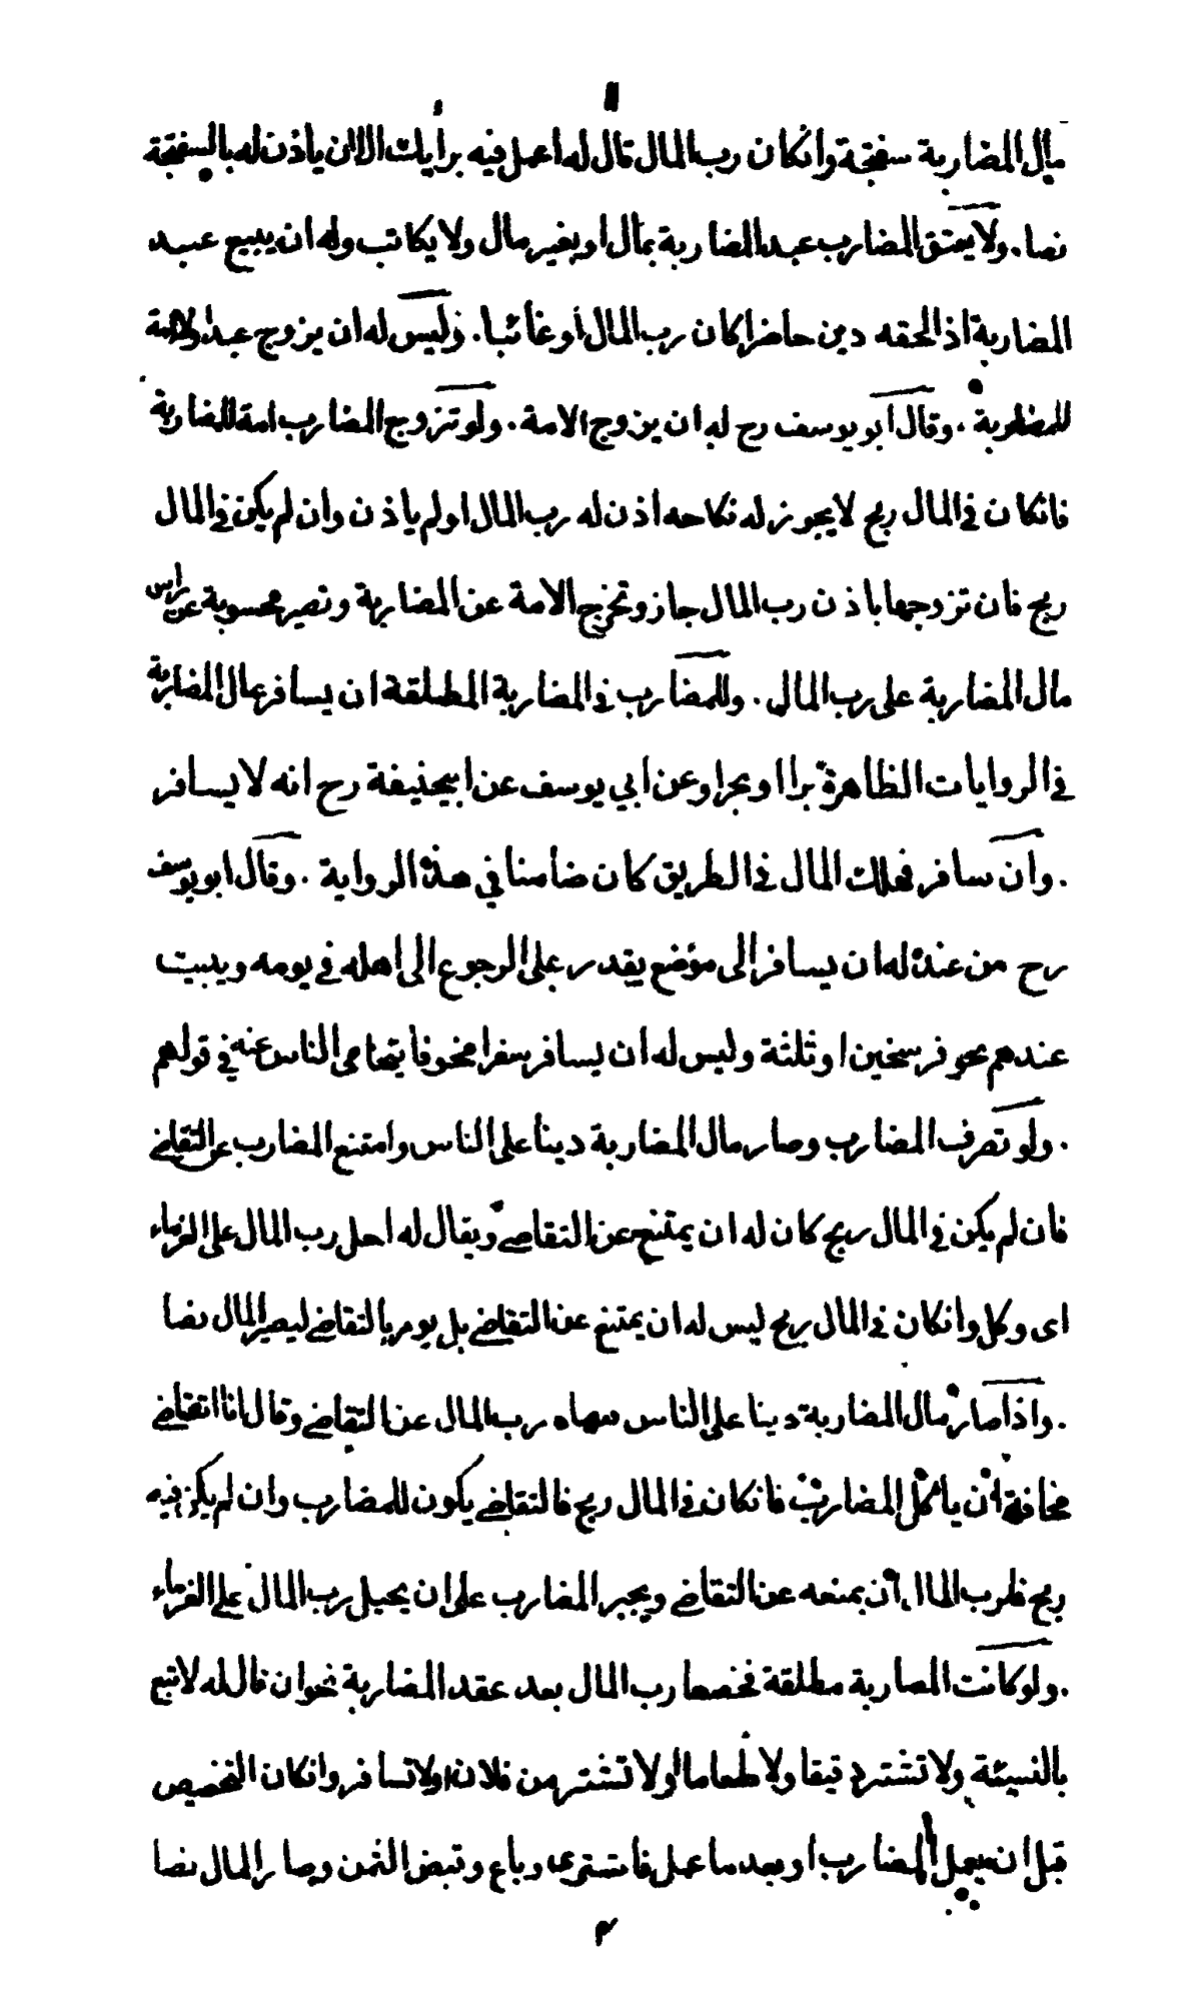 ١١
مال المضاربة سفتجة وانكان رب المال قال له اعمل فيه برأيك الا ان ياذن له بالسفتجة
نصا . ولا يعتق المضارب عبد المضاربة بمال او بغير مال ولا يكاتب وله ان يبيع عبد
المضاربة اذ الحقه دين حاضرا كان رب المال أو غائبا . وليس له ان يزوج عبدا ولا امة
للمضاربة . وقال ابو يوسف رح له ان يزوج الامة . ولو تزوج المضارب امة للمضاربة
فانكان في المال ربح لا يجوز له نكاحه اذن له رب المال اولم ياذن وان لم يكن في المال
ربح فان تزوجها باذن رب المال جاز وتخرج الامة عن المضاربة وتصير محسوبة عن راس
مال المضاربة على رب المال . وللمضارب في المضاربة المطلقة ان يسافر بمال المضاربة
في الروايات الظاهرة برا او بحرا وعن ابي يوسف عن ابيحنيفة رح انه لا يسافر
. وان سافر فهلك المال في الطريق كان ضامنا في هذه الرواية . وقال ابو يوسف
رح من عنده له ان يسافر إلى موضع يقدر على الرجوع الى اهله في يومه ويبيت
عندهم نحو فرسخين او ثلثة وليس له ان يسافر سفرا مخوفا يتحامى الناس عنه في قولهم
. ولو تصرف المضارب وصار مال المضاربة دينا على الناس وامتنع المضارب عن التقاضي
فان لم يكن في المال ربح كان له ان يمتنع عن التقاضي ويقال له احل رب المال على الغرماء
اى وكل وانكان في المال ربح ليس له ان يمتنع عن التقاضي بل يومر بالتقاضي ليصير المال نضا
. واذا صار مال المضاربة دينا على الناس فنهاه رب المال عن التقاضي وقال انا اتقاضي
مخافة ان ياكل المضارب فانكان في المال ربح فالتقاضي يكون للمضارب وان لم يكن فيه
ربح فلرب المال ان يمنعه عن التقاضي ويجبر المضارب على ان يحيل رب المال على الغرماء
. ولو كانت المضاربة مطلقة فخصها رب المال بعد عقد المضاربة نحو ان قال له لا تبع
بالنسيئة ولا تشتر دقيقا ولا طعاما اولا تشتر من فلان اولا تسافر وانكان التخصيص
قبل ان يعمل المضارب او بعد ما عمل فاشترى وباع وقبض الثمن وصار المال نضا